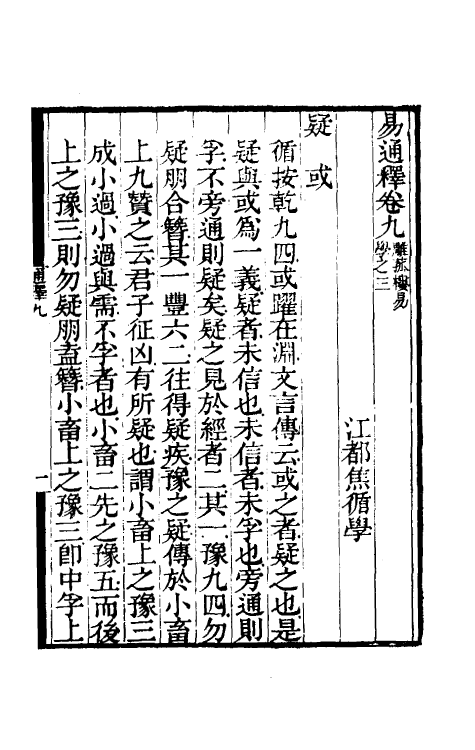 易通釋卷九 雕菰樓易學之三
江都焦循學
疑 或
循按乾九四或躍在淵文言傳云或之者疑之也是
疑與或爲一義疑者未信也未信者未孚也旁通則
孚不旁通則疑矣疑之見於經者二其一豫九四勿
疑朋合簪其一豐六二往得疑疾豫之疑傳於小畜
上九贊之云君子征凶有所疑也謂小畜上之豫三
成小過小過與需不孚者也小畜二先之豫五而後
上之豫三則勿疑朋盍簪小畜上之豫三卽中孚上
通釋九
一